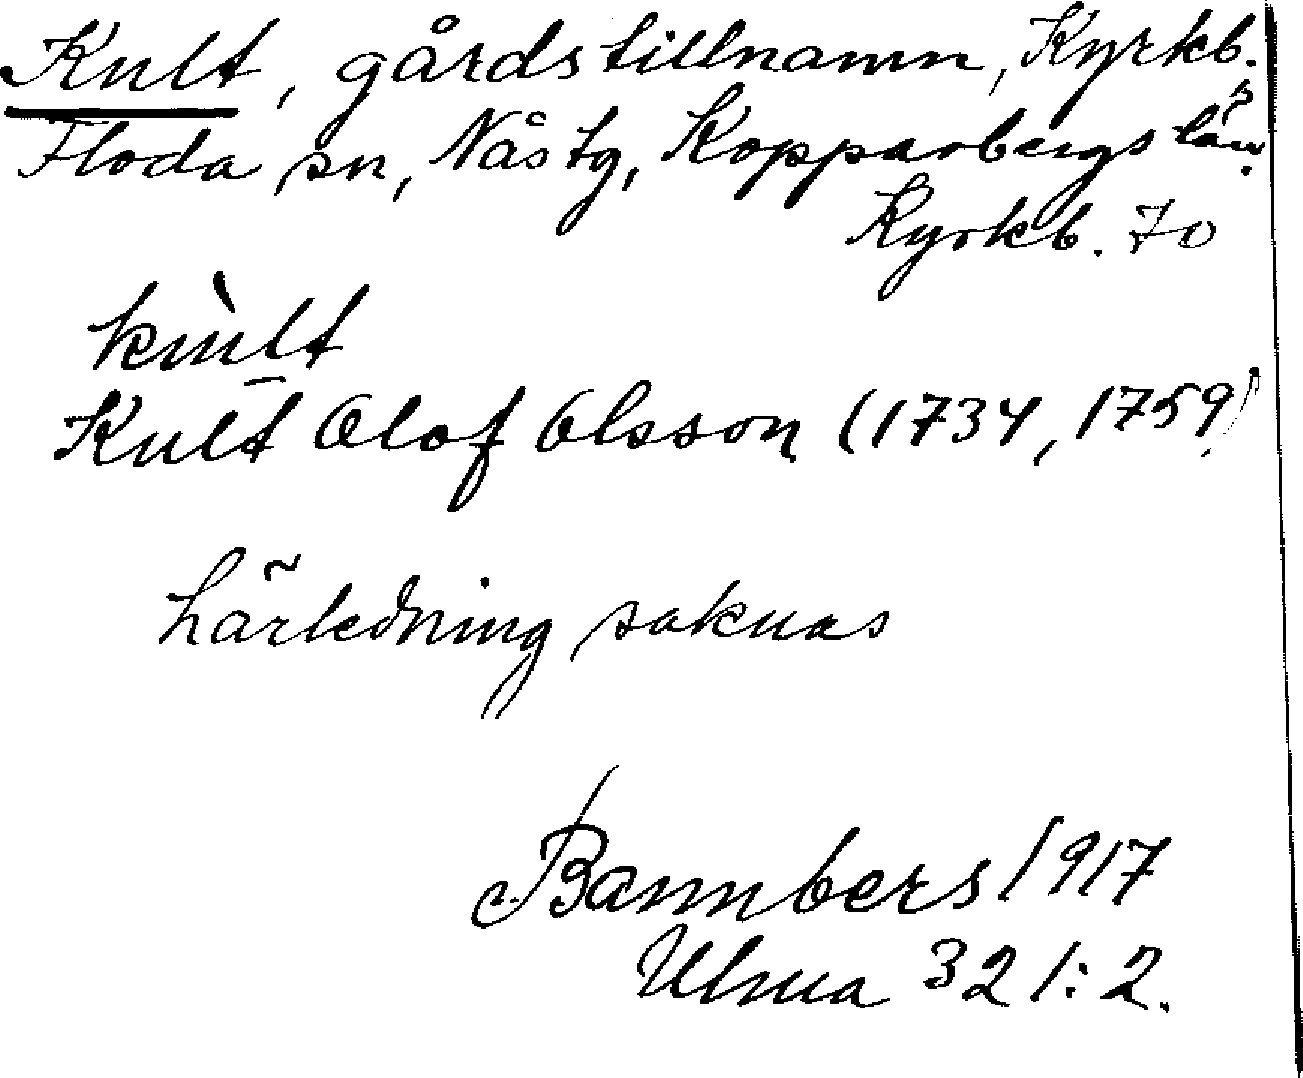 Kult, gårdstillnamn, Kyrkb.,
Floda sn, Nås tg, Kopparbergs län.
Kyrkb. 70
kùlt
Kult Olof Olsson (1734, 1759)
härledning saknas
Bannbers 1917
Ulma 321:2.